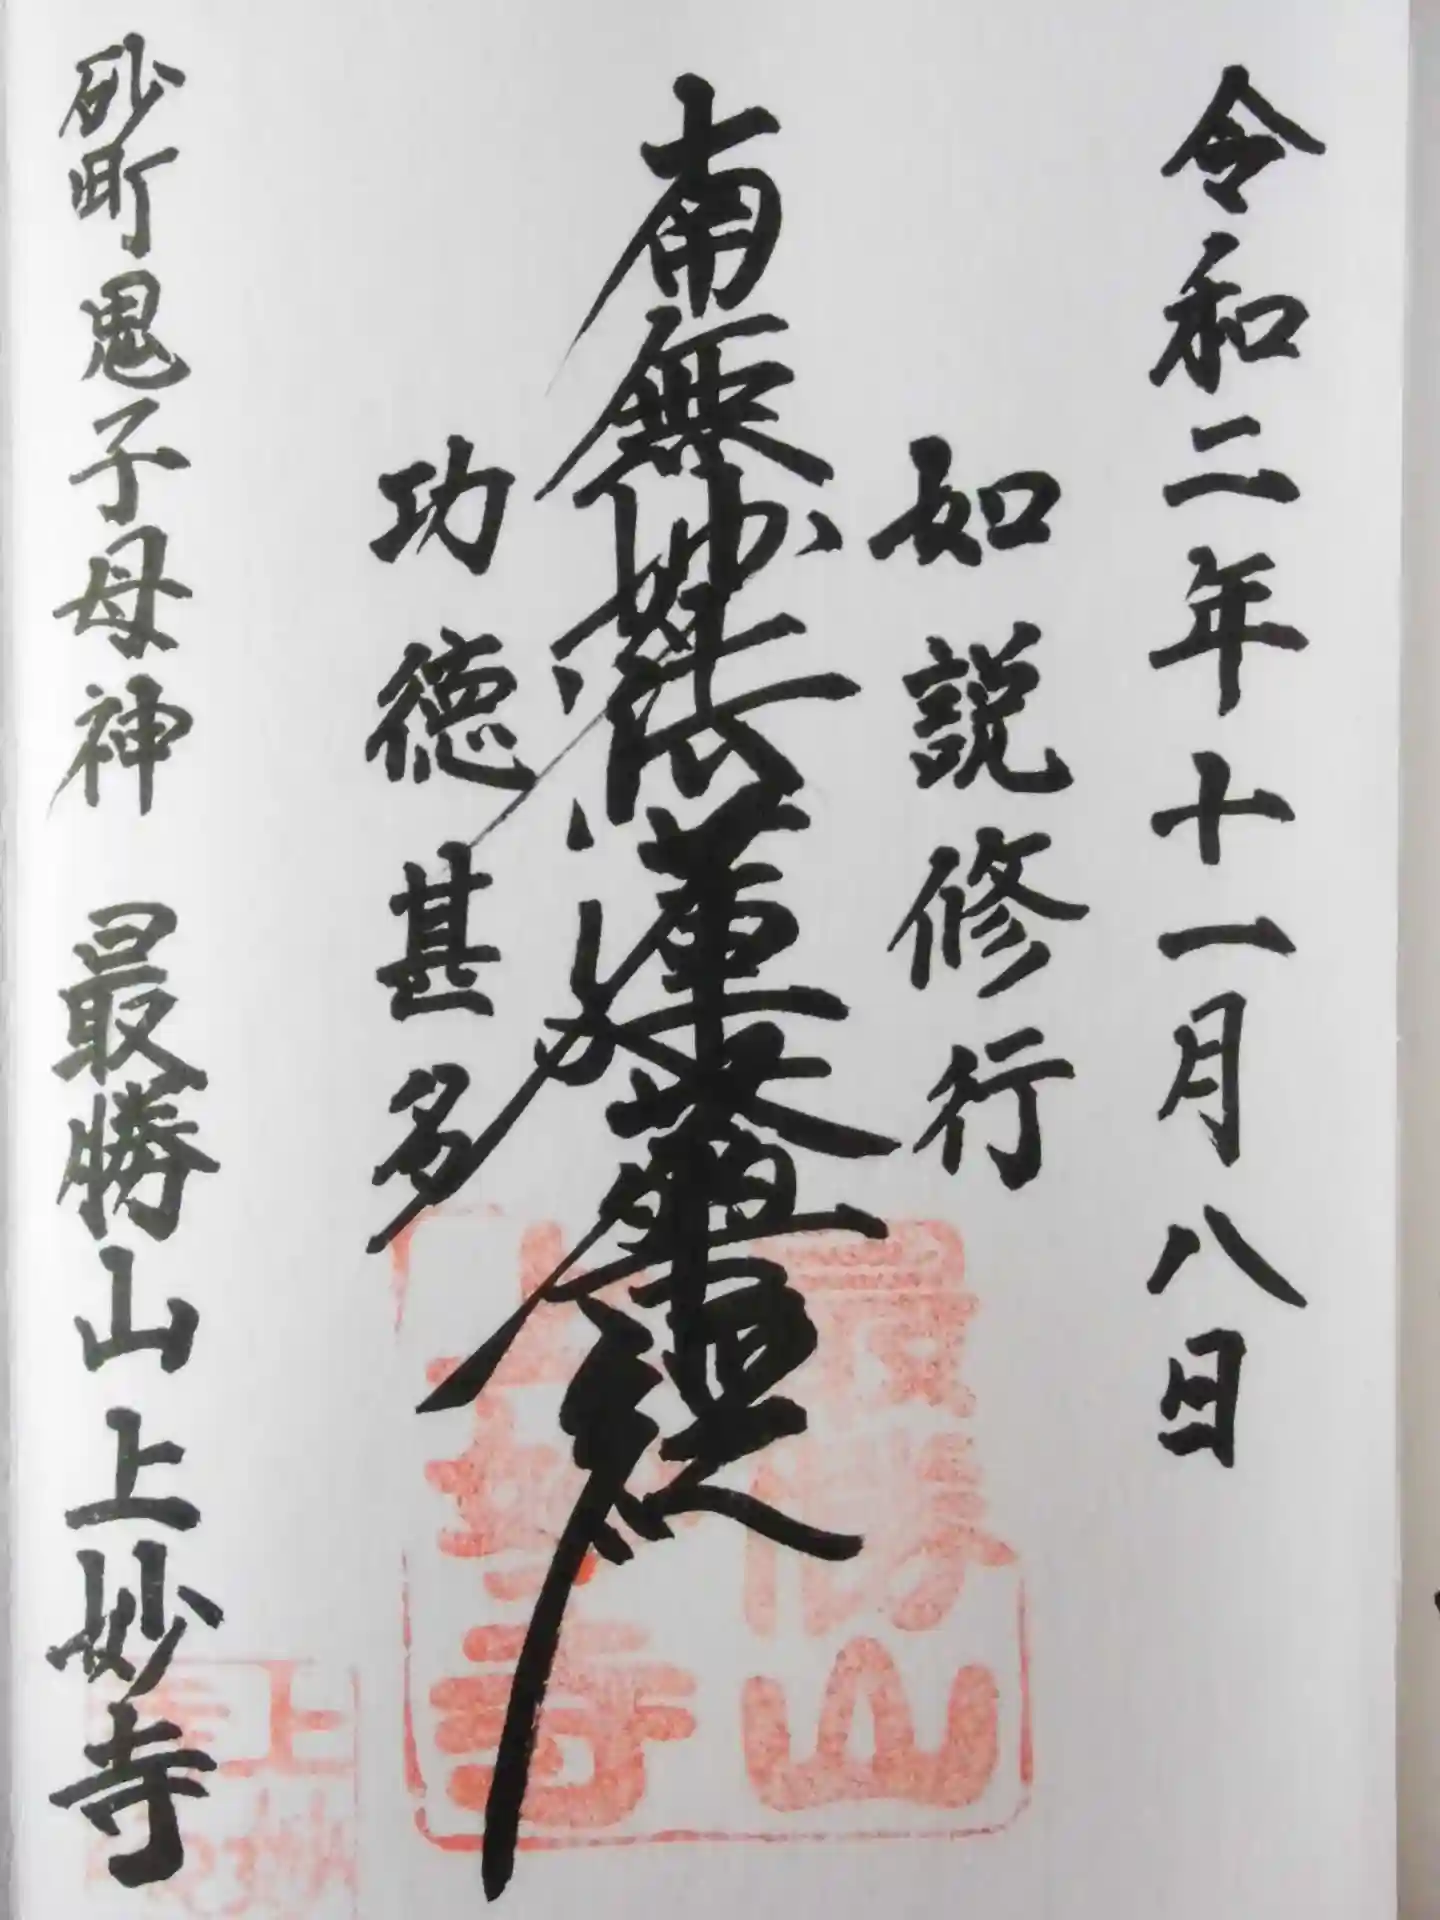 令和二年十一月八日
如説修行
南無妙法蓮華経
功徳甚多
砂町鬼子母神 最勝山上妙寺
最勝山
上妙寺
上妙